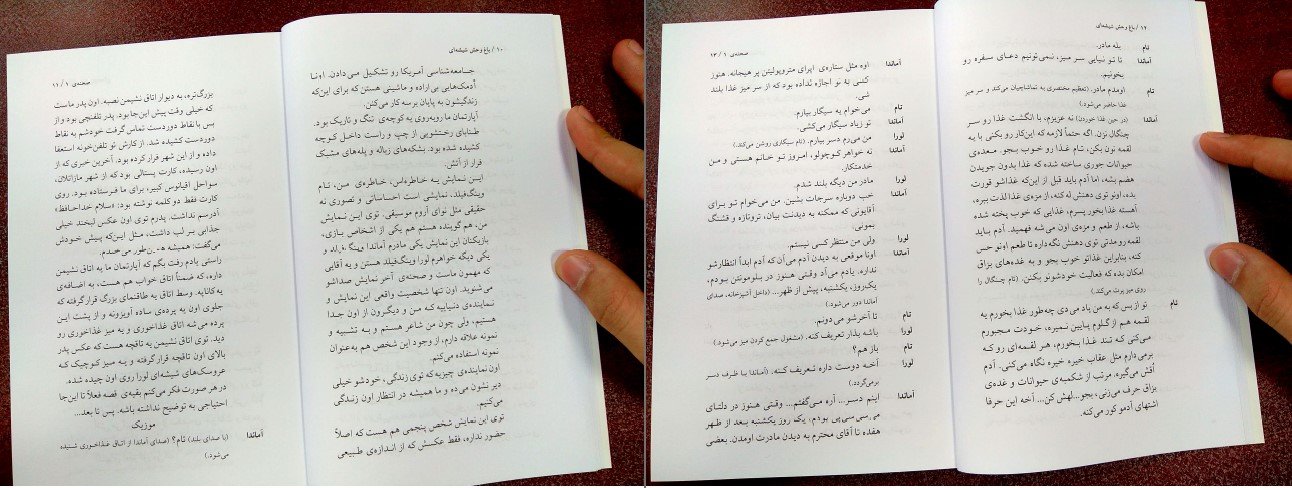 ۱۰ / باغ وحش شیشه‌ای
جامعه‌شناسی آمریکا رو تشکیل می‌دادن. اونا
آدمک‌هایی بی‌اراده و ماشینی هستن که برای این‌که
زندگیشون به پایان برسه کار می‌کنن.
آپارتمان ما روبه‌روی یه کوچه‌ی تنگ و تاریک بود.
طنابای رختشویی از چپ و راست داخل کوچه
کشیده شده بود. بشکه‌های زباله و پله‌های مشبک
فرار از آتش.
این نمایش یه خاطره‌اس، خاطره‌ی من، تام
وینگ‌فیلد. نمایشی است احساساتی و تصوری نه
حقیقی مثل نوای آروم موسیقی. توی این نمایش
من، هم گوینده هستم هم یکی از اشخاص بازی،
بازیکنان این نمایش یکی مادرم آماندا وینگ‌فیلد و
یکی دیگه خواهرم لورا وینگ‌فیلد هستن و یه آقایی
که مهمون ماست و صحنه‌ی آخر نمایش صداشو
می‌شنوید. اون تنها شخصیت واقعی این نمایش و
نماینده‌ی دنیاییه که من و دیگرون از اون جدا
هستیم، ولی چون من شاعر هستم و به تشبیه و
نمونه علاقه دارم، از وجود این شخص هم به‌عنوان
نمونه استفاده می‌کنم.
اون نماینده‌ی چیزیه که توی زندگی، خودشو خیلی
دیر نشون می‌ده و ما همیشه در انتظار اون زندگی
می‌کنیم.
توی این نمایش شخص پنجمی هم هست که اصلاً
حضور نداره، فقط عکسش که از اندازه‌ی طبیعی
صحنه‌ی ۱ / ۱۱
بزرگ‌تره، به دیوار اتاق نشیمن نصبه. اون پدر ماست
که خیلی وقت پیش این‌جا بود. پدر تلفنچی بود و از
بس با نقاط دوردست تماس گرفت خودشم به نقاط
دوردست کشیده شد. از کارش تو تلفن‌خونه استعفا
داده و از این شهر فرار کرده بود. آخرین خبری که از
اون رسیده، کارت پستالی بود که از شهر مازاتلان،
سواحل اقیانوس کبیر، برای ما فرستاده بود. روی
کارت فقط دو کلمه نوشته بود: «سلام خداحافظ»
آدرسم نداشت. پدرم توی اون عکس لبخند خیلی
جذابی بر لب داشت، مثل این‌که پیش خودش
می‌گفت: همیشه همین‌طور می‌خندم.
راستی یادم رفت بگم که آپارتمان ما یه اتاق نشیمن
داره، که ضمناً اتاق خواب هم هست، به اضافه‌ی
یه کاناپه. وسط اتاق یه طاقنمای بزرگ قرار گرفته که
جلوی اون یه پرده‌ی ساده آویزونه و از پشت این
پرده می‌شه اتاق غذاخوری و یه میز غذاخوری رو
دید. توی اتاق نشیمن یه تاقچه هست که عکس پدر
بالای اون تاقچه قرار گرفته و یه میز کوچیک که
عروسک‌های شیشه‌ای لورا روی اون چیده شده.
در هر صورت فکر می‌کنم بقیه‌ی قصه فعلاً تا این‌جا
احتیاجی به توضیح نداشته باشه. پس تا بعد...
موزیک
آماندا (با صدای بلند) تام؟ (صدای آماندا از اتاق غذاخوری شنیده
می‌شود.)
۱۲ / باغ وحش شیشه‌ای
تام بله مادر.
آماندا تا تو نیایی سر میز، نمی‌تونیم دعای سفره رو
بخونیم.
تام اومدم مادر. (تعظیم مختصری به تماشاچیان می‌کند و سر میز
غذا حاضر می‌شود.)
آماندا (در حین غذا خوردن) نه عزیزم، با انگشت غذا رو سر
چنگال نزن. اگه حتماً لازمه که این‌کار رو بکنی با یه
لقمه نون بکن، تام غذا رو خوب بجو. معده‌ی
حیوانات جوری ساخته شده که غذا بدون جویدن
هضم بشه، اما آدم باید قبل از این‌که غذاشو قورت
بده، اونو توی دهنش له کنه، از مزه‌ی غذا لذت ببره،
آهسته غذا بخور پسرم، غذایی که خوب پخته شده
باشه، از طعم و مزه‌ی اون می‌شه فهمید. آدم باید
لقمه رو مدتی توی دهنش نگه داره تا طعم اونو حس
کنه، بنابراین غذاتو خوب بجو و به غده‌های بزاق
امکان بده که فعالیت خودشونو بکنن. (تام چنگال را
روی میز پرت می‌کند.)
تام تو از بس که به من یاد می‌دی چه‌طور غذا بخورم یه
لقمه هم از گلوم پایین نمیره، خودت مجبورم
می‌کنی که تند غذا بخورم، هر لقمه‌ای رو که
برمی‌دارم مثل عقاب خیره خیره نگاه می‌کنی. آدم
اُقش می‌گیره. مرتب از شکمبه‌ی حیوانات و غده‌ی
بزاق حرف می‌زنی، بجو... لهش کن... آخه این حرفا
اشتهای آدمو کور می‌کنه.
صحنه‌ی ۱ / ۱۳
آماندا اوه مثل ستاره‌ی اپرای متروپولیتن پر هیجانه. هنوز
کسی به تو اجازه نداده بود که از سر میز غذا بلند
شی.
تام می‌خوام یه سیگار بیارم.
آماندا تو زیاد سیگار می‌کشی.
لورا من می‌رم دسر بیارم. (تام سیگاری روشن می‌کند.)
آماندا نه خواهر کوچولو، امروز تو خانم هستی و من
خدمتکار.
لورا مادر من دیگه بلند شدم.
آماندا خب دوباره سرجات بشین. من می‌خوام تو برای
آقایونی که ممکنه به دیدنت بیان، تروتازه و قشنگ
بمونی.
لورا ولی من منتظر کسی نیستم.
آماندا اونا موقعی به دیدن آدم می‌آن که آدم ابداً انتظارشو
نداره. یادم می‌آد وقتی هنوز در بلومونتن بودم،
یک‌روز، یکشنبه، پیش از ظهر... (داخل آشپزخانه، صدای
آماندا دور می‌شود.)
تام تا آخرشو می‌دونم.
لورا باشه بذار تعریف کنه. (مشغول جمع کردن میز می‌شود.)
تام باز هم؟
لورا آخه دوست داره تعریف کنه. (آماندا با ظرف دسر
برمی‌گردد.)
آماندا اینم دسر... آره می‌گفتم... وقتی هنوز در دلتای
می‌سی‌سی‌پی بودم، یک روز یکشنبه بعد از ظهر
هفده تا آقای محترم به دیدن مادرت اومدن. بعضی